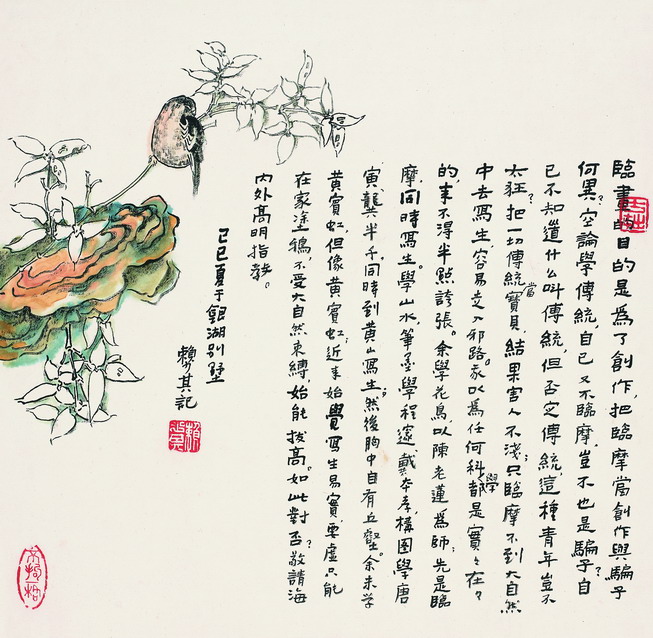 臨畫的目的是爲了創作,把臨摩當創作與騙子
何異?空論學傳統,自己又不臨摩,豈不也是騙子?自
己不知道什么叫傳統,但否定傳統,這種青年豈不
太狂?把一切傳統當寶貝,結果害人不淺;只臨摩不到大自然
中去寫生,容易走入邪路。我以爲任何科學都是實々在々
的,来不得半點誇張。余學花鳥,以陳老蓮爲師;先是臨
摩,同時寫生。學山水,筆墨學程邃、戴本孝,構图學唐
寅、龔半千,同時到黃山寫生。然後胸中自有丘壑。余未學
黃賓虹,但像黃賓虹;近年始覺寫生易實,要虛只能
在家塗鴉,不受大自然束縛,始能拔高。如此對否?敬請海
內外高明指教。
己巳夏于銀湖別墅
賴少其記
賴少其